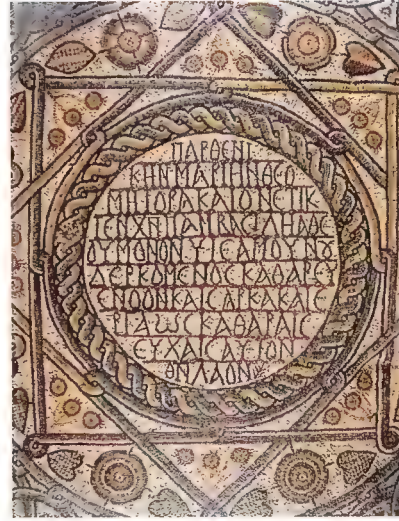 ΠΑΡΘΕΝΙ
ΚΗΝΜΑΡΙΗΝΘΕΟ
ΜΗΤΟΡΑΚΑΙΟΝΕΤΙΚ
ΤΕΝΧΝΠΑΝΒΑCΙΛΗΑΘΕ
ΟΥΜΟΝΟΝΥΙΕΑΜΟΥΝȢ
ΔΕΡΚΟΜΕΝΟCΚΑΘΑΡΕΥ
ΕΝΟΟΝΚΑΙCΑΡΚΑΚΑΙΕ
ΡΓΑΩCΚΑΘΑΡΑΙC
ΕΥΧΑΙCΑΥΤΟΝ
ΘȢΛΑΟΝ